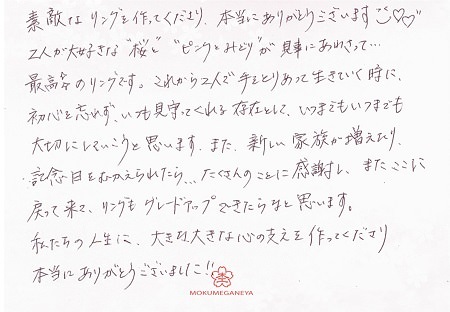 素敵なリングを作ってくださり、本当にありがとうございます♡♡
2人が大好きな"桜"と"ピンクとみどり"が見事にあわさって…
最高傑のリングです。これから2人で手をとりあって生きていく時に、
初心を忘れず、いつも見守ってくれる存在として、いつまでもいつまでも
大切にしていこうと思います。また、新しい家族が増えたり、
記念日をむかえられたら…たくさんのことに感謝し、またここに
戻って来て、リングもグレードアップできたらなと思います。
私たちの人生に、大きな大きな心の支えを作ってくださり
本当にありがとうございました!!
MOKUMEGANEYA